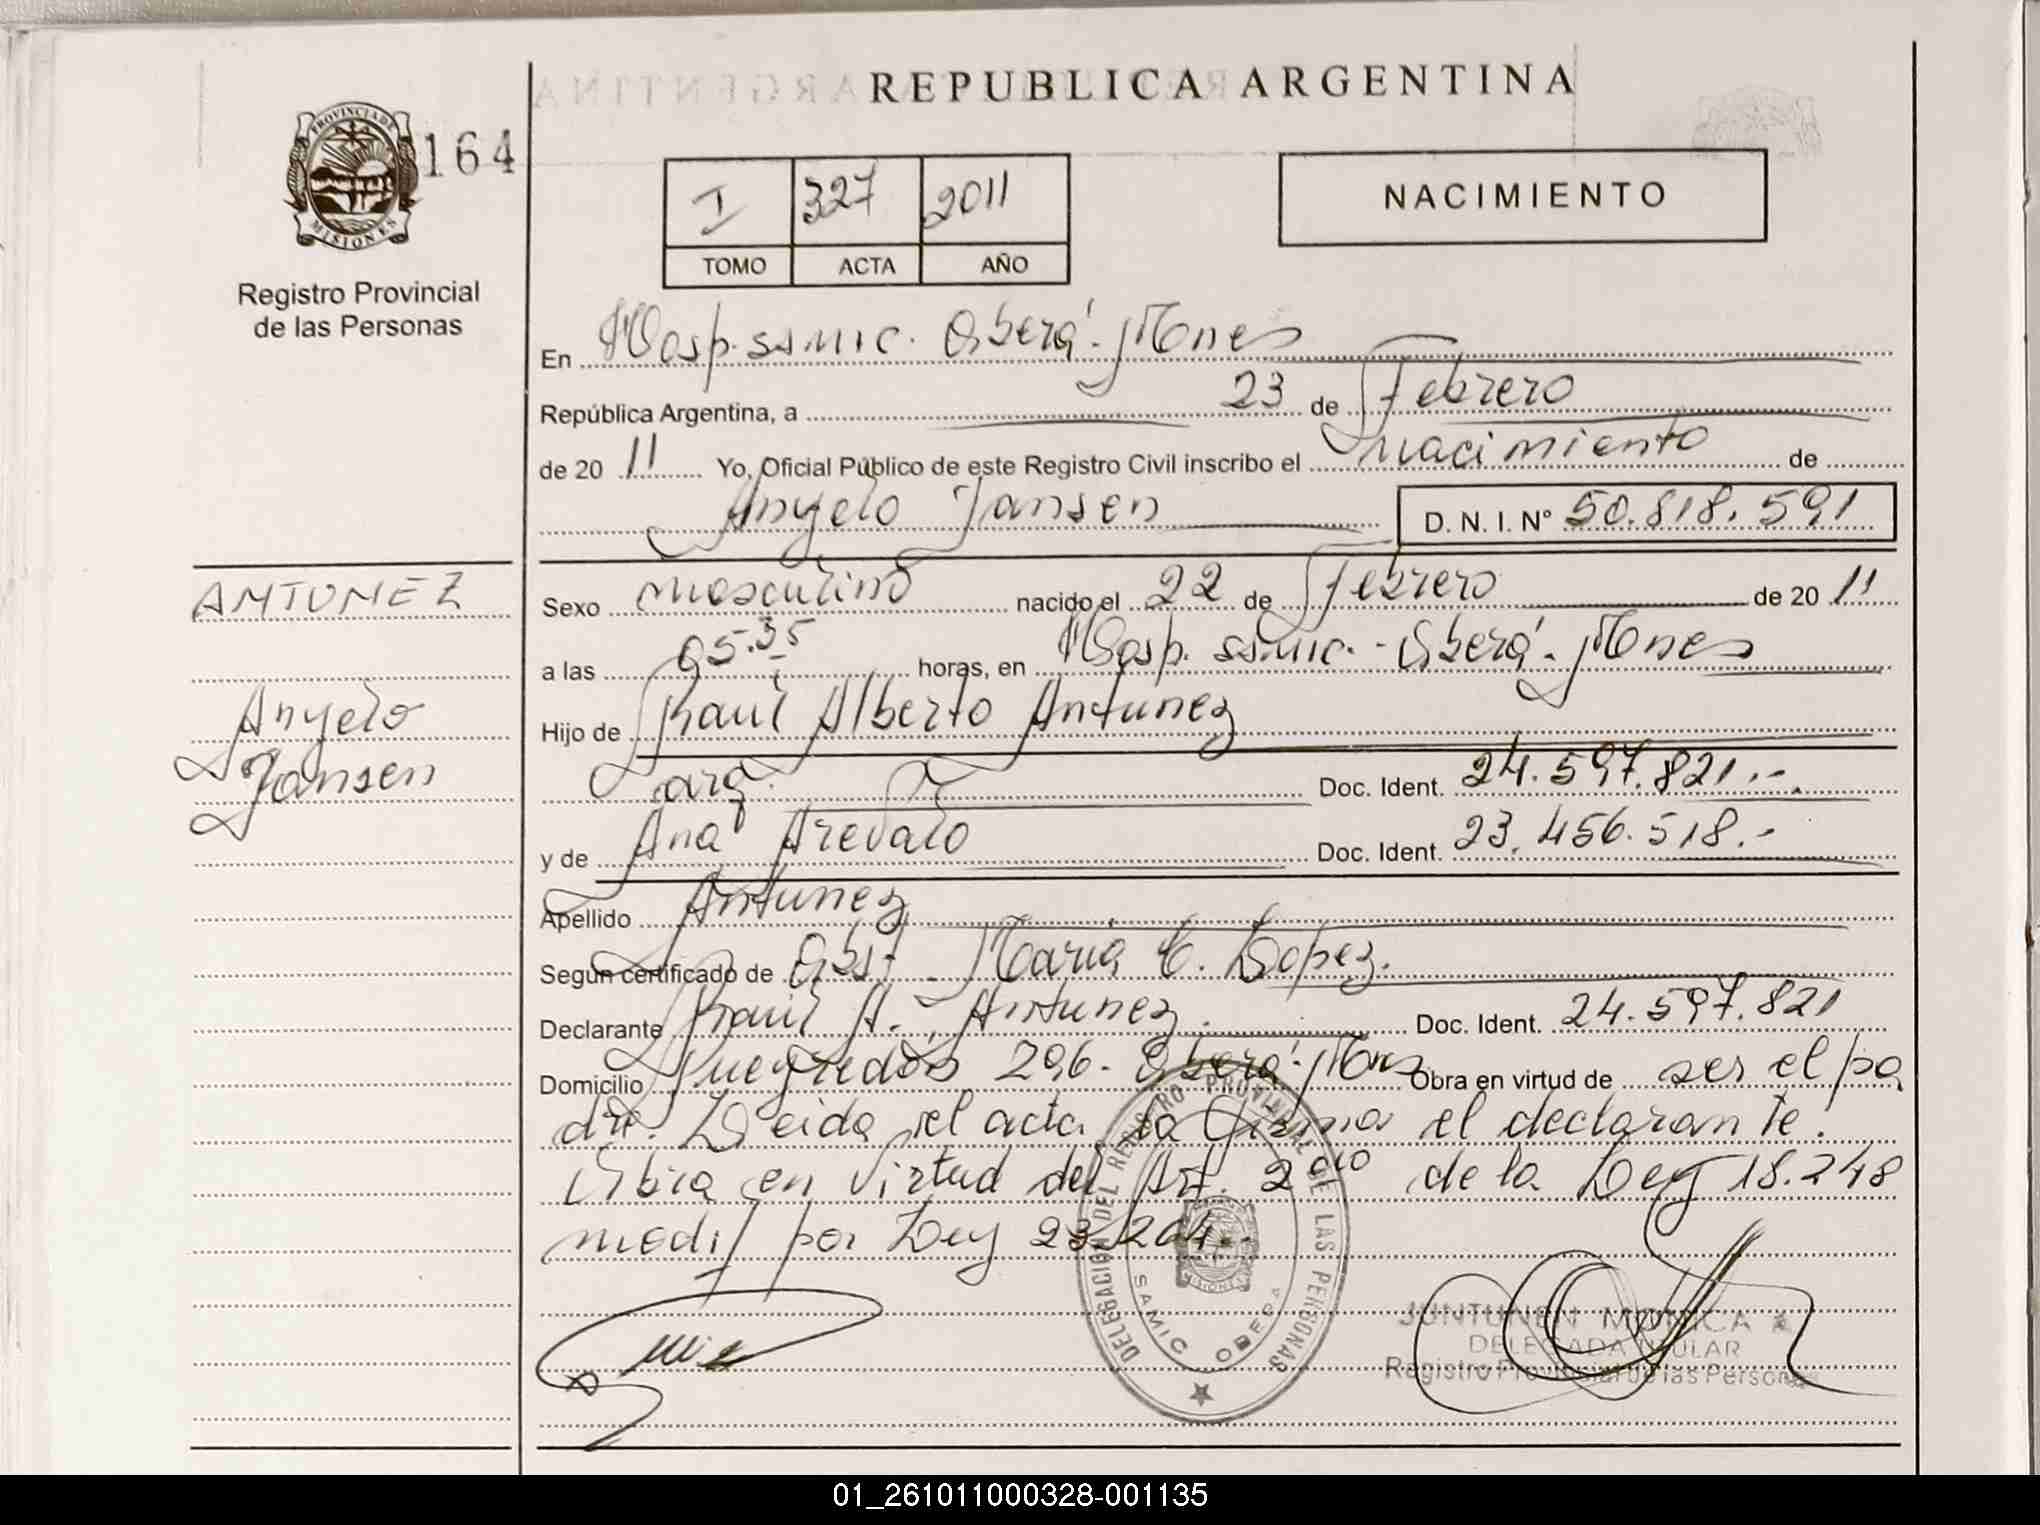 REPUBLICA ARGENTINA
PROVINCIA DE MISIONES
164
Registro Provincial
de las Personas
I 327 2011
TOMO ACTA AÑO
NACIMIENTO
En Hosp. ssmic. Oberá. Mones
República Argentina, a 23 de Febrero
de 20 11 Yo, Oficial Público de este Registro Civil inscribo el nacimiento de
Angelo Jansen D. N. I. Nº 50.818.591
ANTUNEZ
Angelo
Jansen
Sexo masculino nacido el 22 de Febrero de 20 11
a las 05.35 horas, en Hosp. ssmic. - Oberá. Mones
Hijo de Raul Alberto Antunez
arg. Doc. Ident. 24.597.821.-
y de Ana Arevalo Doc. Ident. 23.456.518.-
Apellido Antunez
Según certificado de Obst. Maria C. Lopez.
Declarante Raul A. Antunez. Doc. Ident. 24.597.821
Domicilio 296. Oberá. Mnes Obra en virtud de ser el pa
dre. Leida el acta la firma el declarante.
Obra en virtud del Art. 2do de la Ley 18.248
modif por Ley 23.264.-
DELEGACION DEL REGISTRO PROVINCIAL DE LAS PERSONAS
SAMIC OBERA
MISIONES
JUNTUNEN MONICA A
DELEGADA TITULAR
Registro Provincial de las Personas
01_261011000328-001135